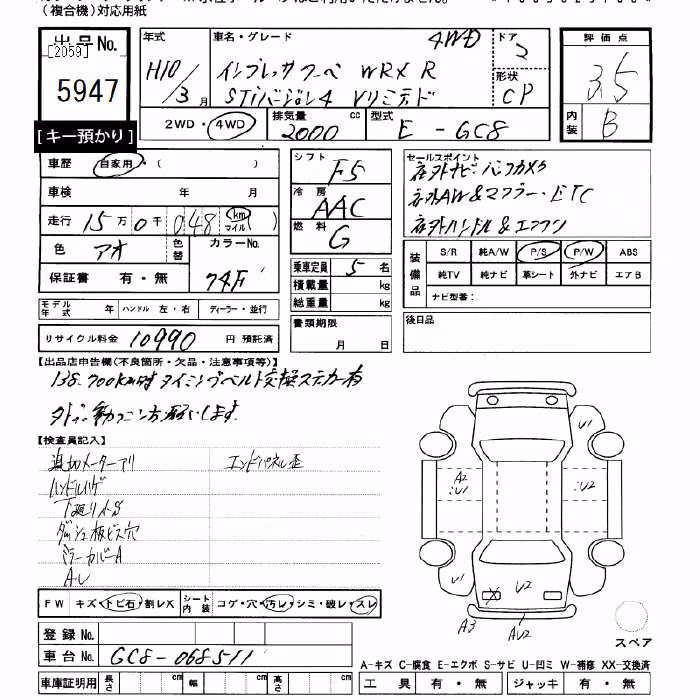 (複合機)対応用紙
出品No.
[2059]
5947
[キー預かり]
年式 H10/3月
車名・グレード 4WD
インプレッサクーペ WRX R
STiバージョン4 Vリミテッド
ドア 2
形状 CP
2WD・4WD 排気量 2000 cc 型式 E-GC8
評価点 3.5
内装 B
車歴 自家用・( )
車検 年 月
走行 15万0千048 km マイル
色 アオ 色替 カラーNo. 74F
保証書 有・無
シフト F5
冷房 AAC
燃料 G
乗車定員 5名
積載量 kg
総重量 kg
セールスポイント
社外ナビ・バックカメラ
社外AW&マフラー・ETC
社外ハンドル&エアクリ
装備品 S/R 純A/W P/S P/W ABS
純TV 純ナビ 革シート 外ナビ エアB
ナビ型番:
モデル年式 年 ハンドル 左・右 ディーラー・並行
書類期限 月 日
後日品
リサイクル料金 10990 円 預託済
【出品店申告欄(不良箇所・欠品・注意事項等)】
138,700km時タイミングベルト交換ステッカー有
【検査員記入】
追加メーターアリ エンドパネル歪
ハンドルハゲ
下廻りサS
ダッシュ板ビス穴
ミラーカバーA
A.U
U1
A2
U1
U2
U1
U2
U1
X
A3
AU2
スペア
FW キズ・トビ石・割レX シート内装 コゲ・穴・汚レ・シミ・破レ・スレ
登録No.
車台No. GC8-068511
A-キズ C-腐食 E-エクボ S-サビ U-凹ミ W-補修 XX-交換済
車庫証明用 長さ cm 幅 cm 高さ cm
工具 有・無 ジャッキ 有・無